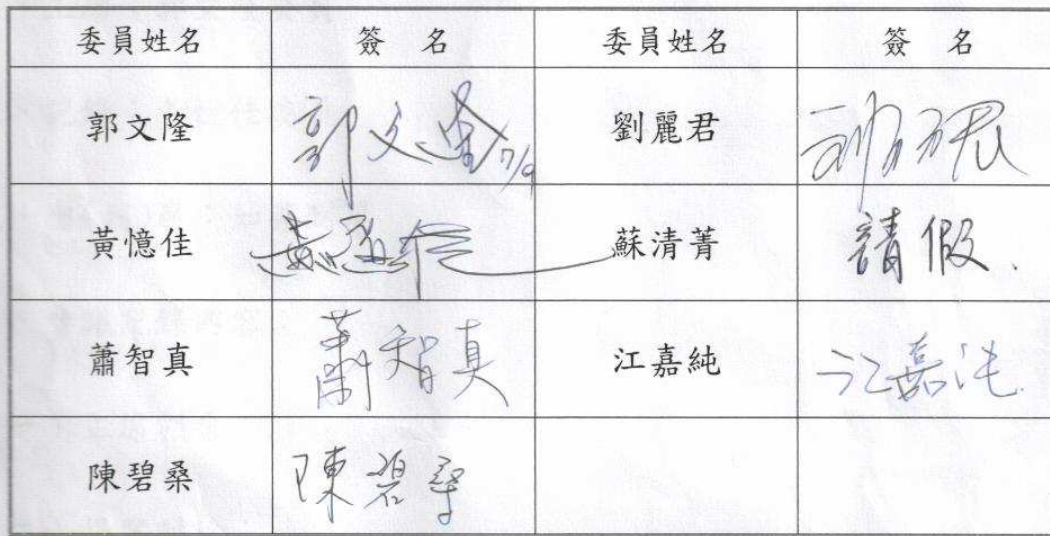 委員姓名 簽 名 委員姓名 簽 名
郭文隆 郭文隆 7/9 劉麗君
黃憶佳 黃憶佳 蘇清菁 請假.
蕭智真 蕭智真 江嘉純 江嘉純
陳碧桑 陳碧桑